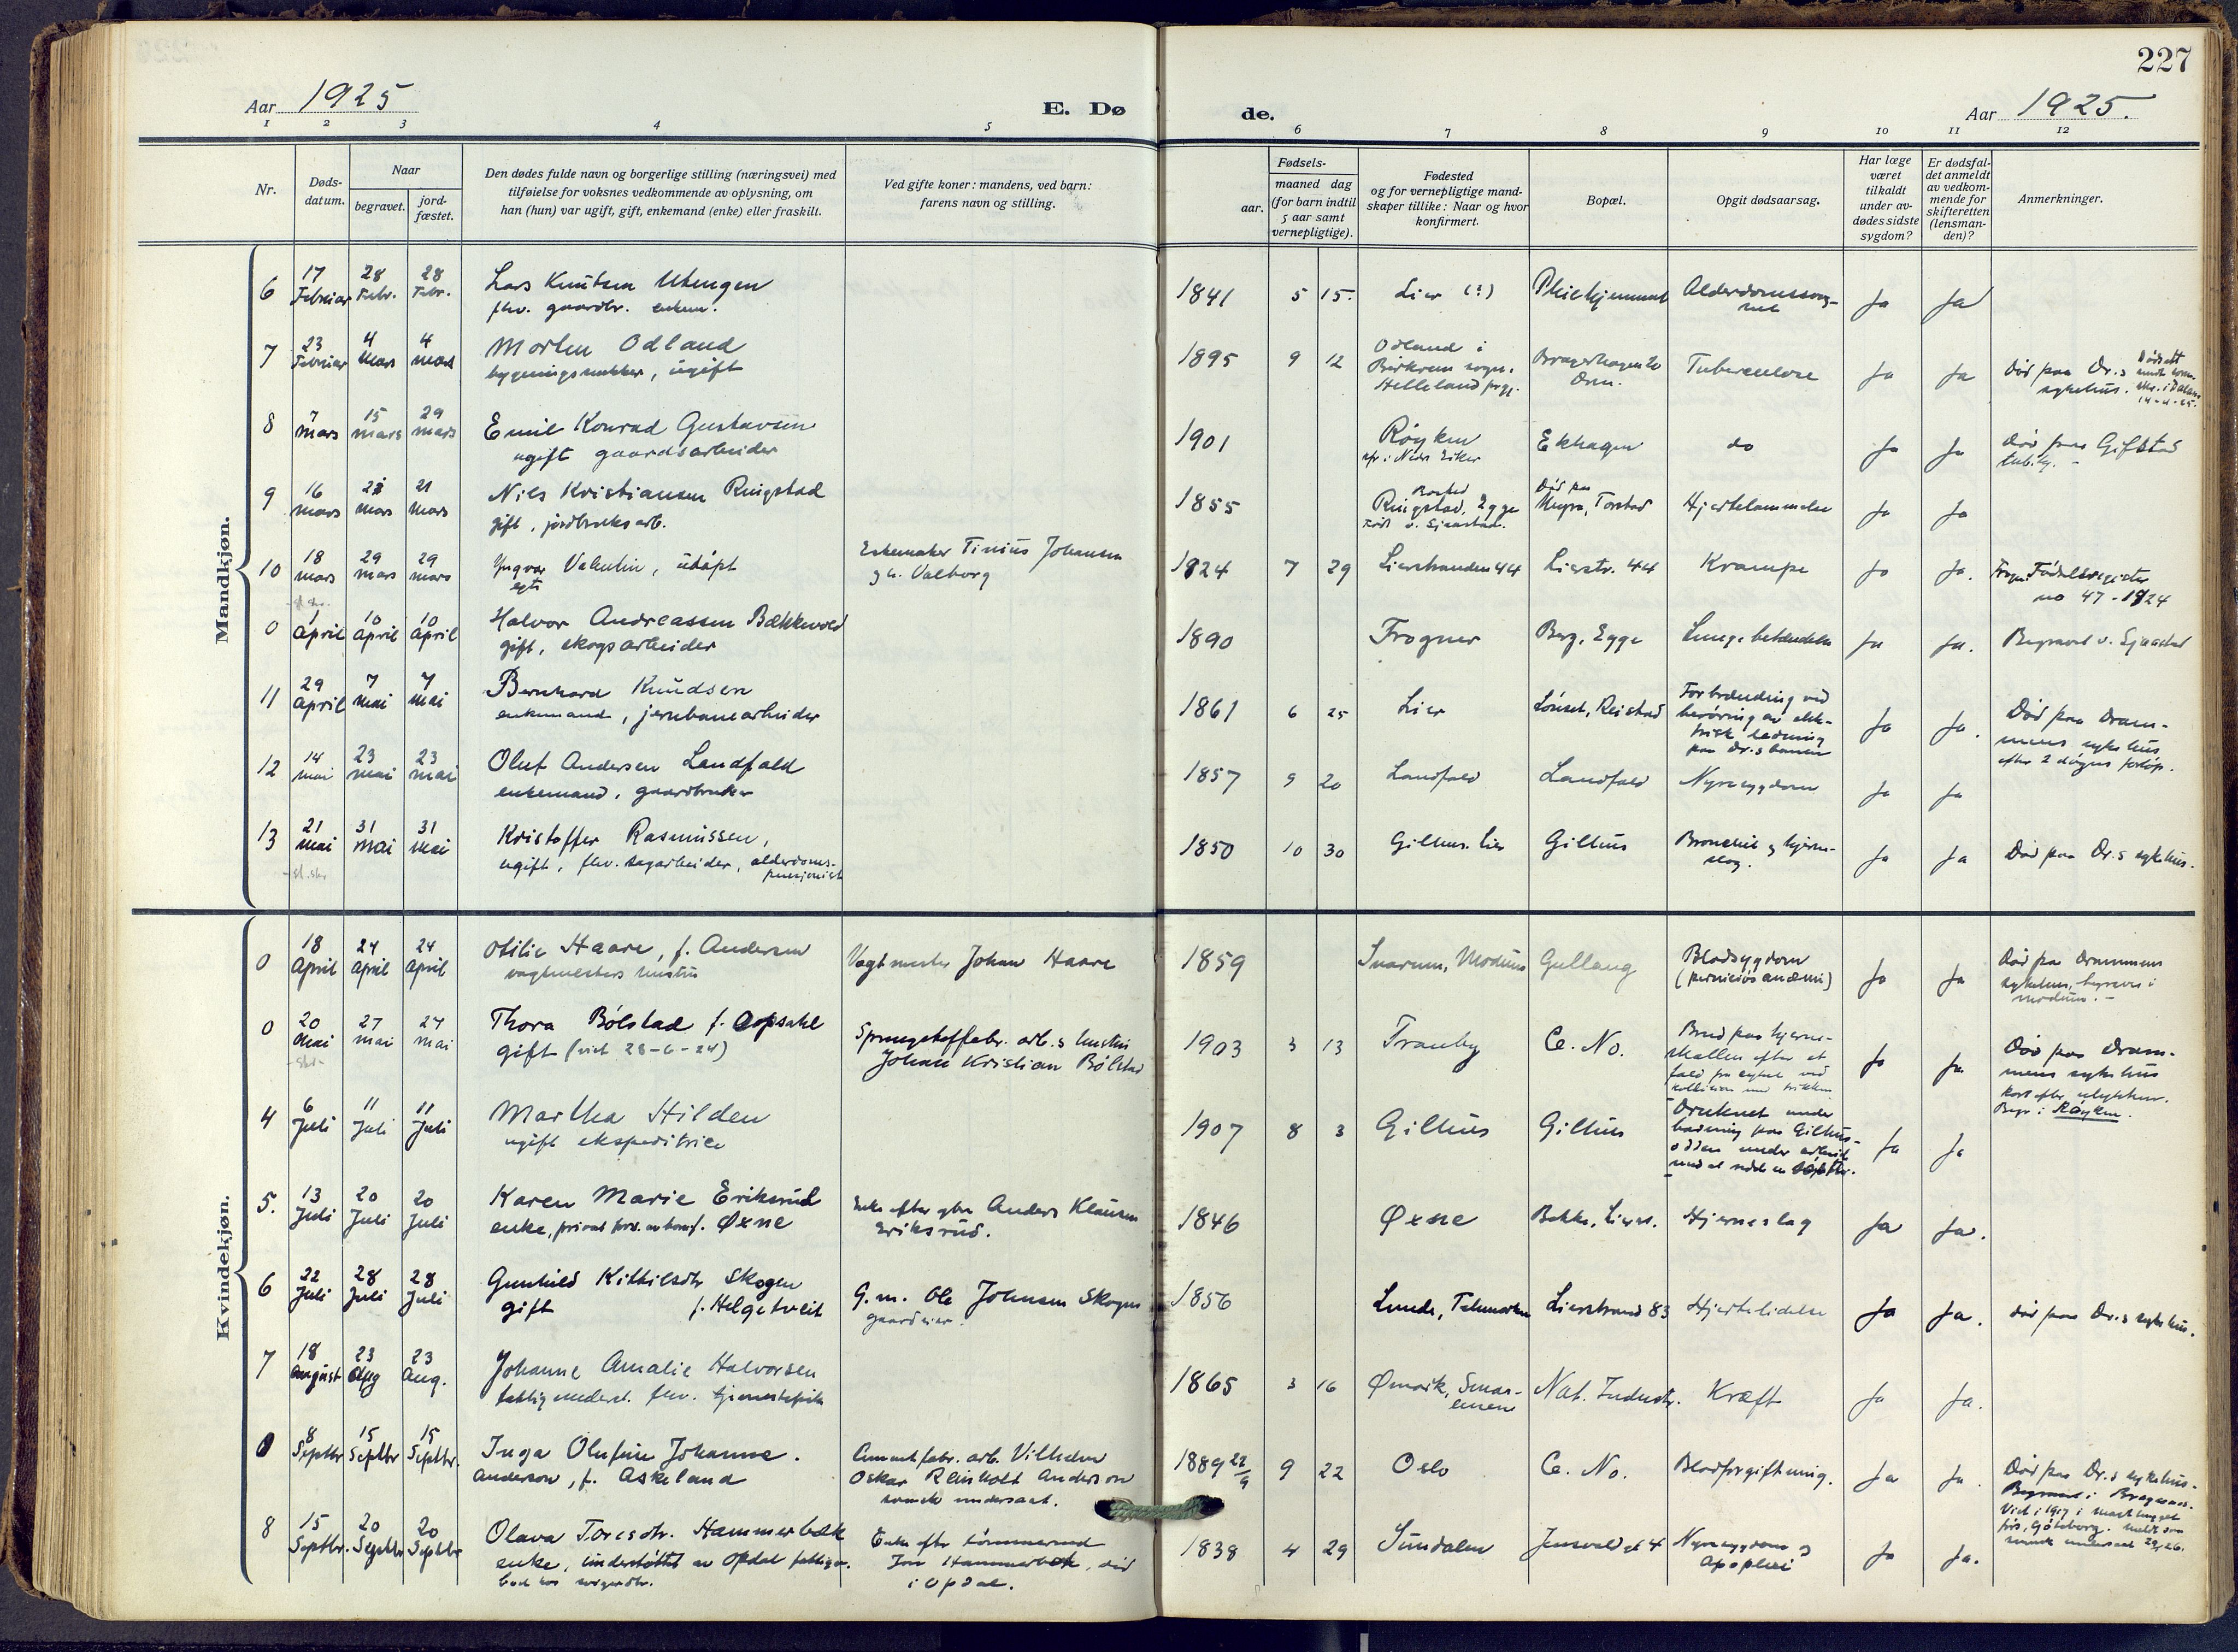 227
Aar 1925
E. Dø de.
Aar 1925.
1 2 3 4 5 6 7 8 9 10 11 12
Nr.
Døds-
datum.
Naar
begravet.
jord-
fæstet.
Den dødes fulde navn og borgerlige stilling (næringsvei) med
tilføielse for voksnes vedkommende av oplysning, om
han (hun) var ugift, gift, enkemand (enke) eller fraskilt.
Ved gifte koner: mandens, ved barn:
farens navn og stilling.
Fødsels-
aar.
maaned dag
(for barn indtil
5 aar samt
vernepligtige).
Fødested
og for vernepligtige mand-
skaper tillike: Naar og hvor
konfirmert.
Bopæl.
Opgit dødsaarsag.
Har læge
været
tilkaldt
under av-
dødes sidste
sygdom?
Er dødsfal-
det anmeldt
av vedkom-
mende for
skifteretten
(lensman-
den)?
Anmerkninger.
Mandkjøn.
6 17 Februar 28 Febr. 28 Febr. Lars Knutsen Utengen 1841 5 15. Lier (?) Pleiehjemmet Ja Ja
fhv. gaardbr. enkem.
7 23 Februar 4 Mars 4 Mars Morten Odland 1895 9 12 Odland i Tuberculose Ja Ja Død paa Dr.s
ugift Helleland sykehus.
14-4-25.
8 7 Mars 15 Mars 29 Mars Emil Konrad Gustavsen 1901 Røyken Ekhagen do Ja Ja Død paa Gifstad
ugift gaardsarbeider
9 16 Mars 21 Mars 21 Mars Nils Kristiansen Ringstad 1855 Ringstad, Egge Torstad Hjertelammelse Ja Ja
gift, jordbruksarb.
10 18 Mars 29 Mars 29 Mars Yngvar Valentin, udøpt Tinius Johansen 1924 7 29 Lierstranden 44 Lierstr. 44 Krampe Ja Ja. Fødselsregister
egte Valborg no 47 - 1924
0 1 April 10 April 10 April Halvor Andreassen Bækkevold 1890 Frogner Berg, Egge Lungebetændelse Ja Ja. Begravet v. Sjaastad
gift, skogsarbeider
11 29 April 7 Mai 7 Mai Bernhard Knudsen 1861 6 25 Lier Reistad Forbrænding ved Ja Ja. Død paa Dram-
enkemand, jernbanearbeider berøring av elek- mens sykehus
trisk ledning efter 2 døgns forløp.
paa Dr.sbanen
12 14 Mai 23 Mai 23 Mai Oluf Andersen Landfald 1857 9 20 Landfald Landfald Nyresygdom Ja Ja
enkemand, gaardbruker
13 21 Mai 31 Mai 31 Mai Kristoffer Rasmussen, 1850 10 30 Gilhus. Lier Gilhus Bronchit og hjerne- Ja Ja Død paa Dr.s sykehus.
ugift, fhv. sagarbeider, alderdoms- slag.
pensjonist
Kvindekjøn.
0 18 April 24 April 24 April Otilie Haare, f. Andersen Vagtmester Johan Haare 1859 Snarum, Modum Gullaug Blodsygdom Ja Ja Død paa Drammens
vagtmesters hustru (perniciøs anæmi) sykehus, begravet i
Modum. -
0 20 Mai 27 Mai 27 Mai Thora Bølstad f. Opsahl Sprængstoffabr. arb.s hustru 1903 3 13 Tranby C. No. Brud paa hjerne- Ja Ja Død paa Dram-
gift (viet 28-6-24) Johan Kristian Bølstad skallen efter et mens sykehus
fald fra sykkel ved kort efter ulykken.
kollision med trikken Begr. i Røyken.
4 6 Juli 11 Juli 11 Juli Martha Hilden 1907 8 3 Gilhus Gilhus Druknet under Ja Ja
ugift ekspeditrice badning paa Gilhus-
odden under
5. 13 Juli 20 Juli 20 Juli Karen Marie Eriksrud Enke efter Anders Klausen 1846 Øxne Hjerneslag Ja Ja.
enke, f. Øxne Eriksrud.
6 22 Juli 28 Juli 28 Juli Gunhild Kittilsdtr Skogen G. m. Ole Johnsen Skogen 1856 Lunde, Telemarken Lierstrand 83 Hjertelidelse Ja Ja. Død paa Dr.s sykehus.
gift f. Helgetveit gaardeier.
7 18 August 23 Aug 23 Aug. Johanne Amalie Halvorsen 1865 3 16 Nat. Industr. Kræft Ja Ja.
fattigunderst. fhv. tjenestepike
0 8 Septbr 15 Septbr 15 Septbr. Inga Olufine Johanne. arb. Vilhelm 1889 22/9 9 22 Oslo C. No. Blodforgiftning. Ja Ja. Død paa Dr.s sykehus.
Anderson, f. Askeland Oskar Reinholt Anderson Begravet i Bragernes.
svensk undersaat. Viet i 1917 i
Göteborg.
8 15 Septbr. 20 Septbr 20 Septbr Olava Toresdtr. Hammerbæk Enke efter tømmermand 1838 4 29 Sundalen Nyresygdom og Ja Ja.
enke, understøttet av Opdal Hammerbæk, Apoplexi
i Opdal.